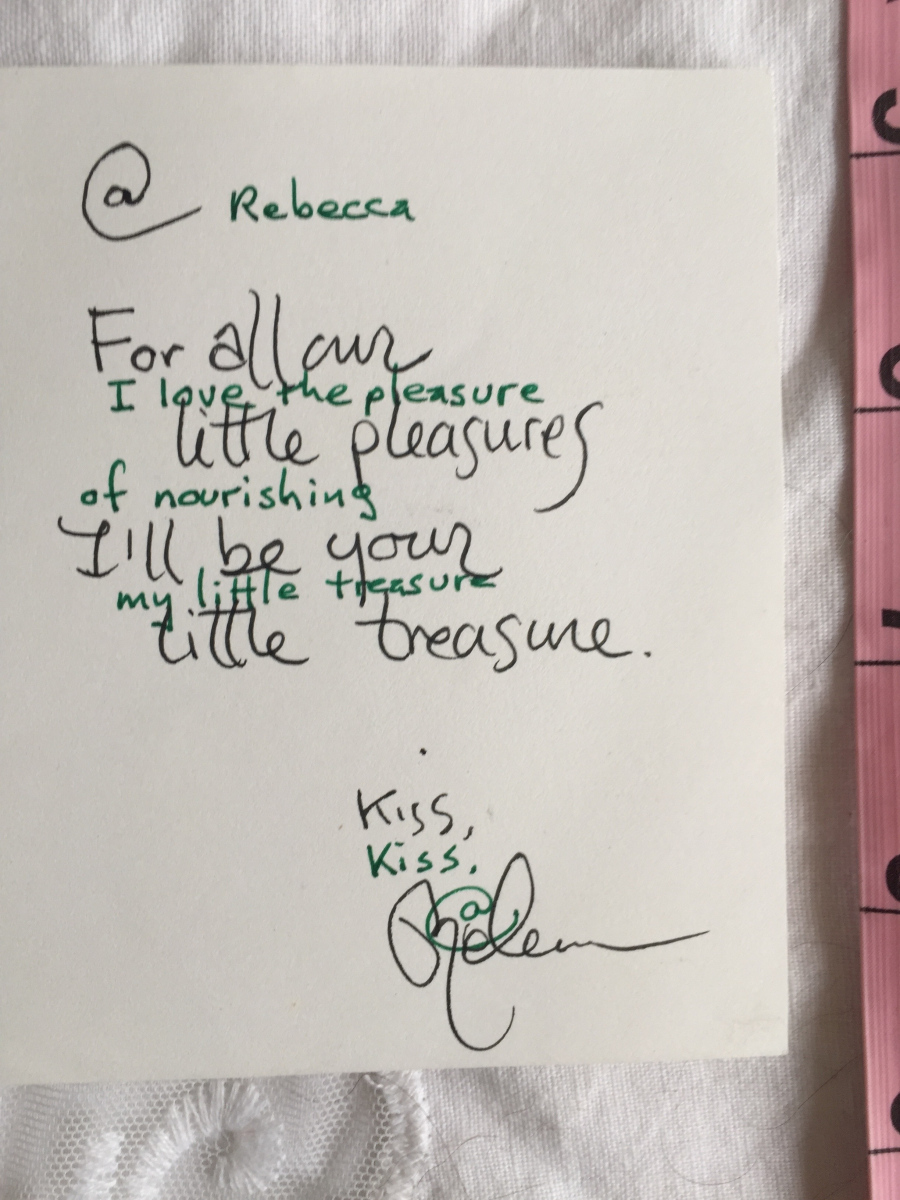 @ Rebecca
For all our
I love the pleasure
little pleasures
of nourishing
I'll be your
my little treasure
little treasure.
Kiss,
Kiss,
@